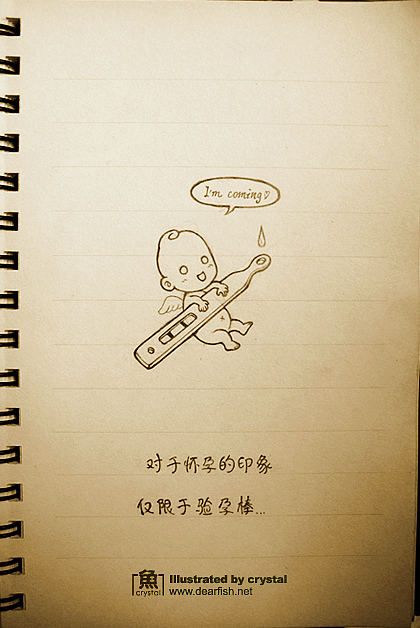 I'm coming♡
对于怀孕的印象
仅限于验孕棒...
魚
crystal
Illustrated by crystal
www.dearfish.net